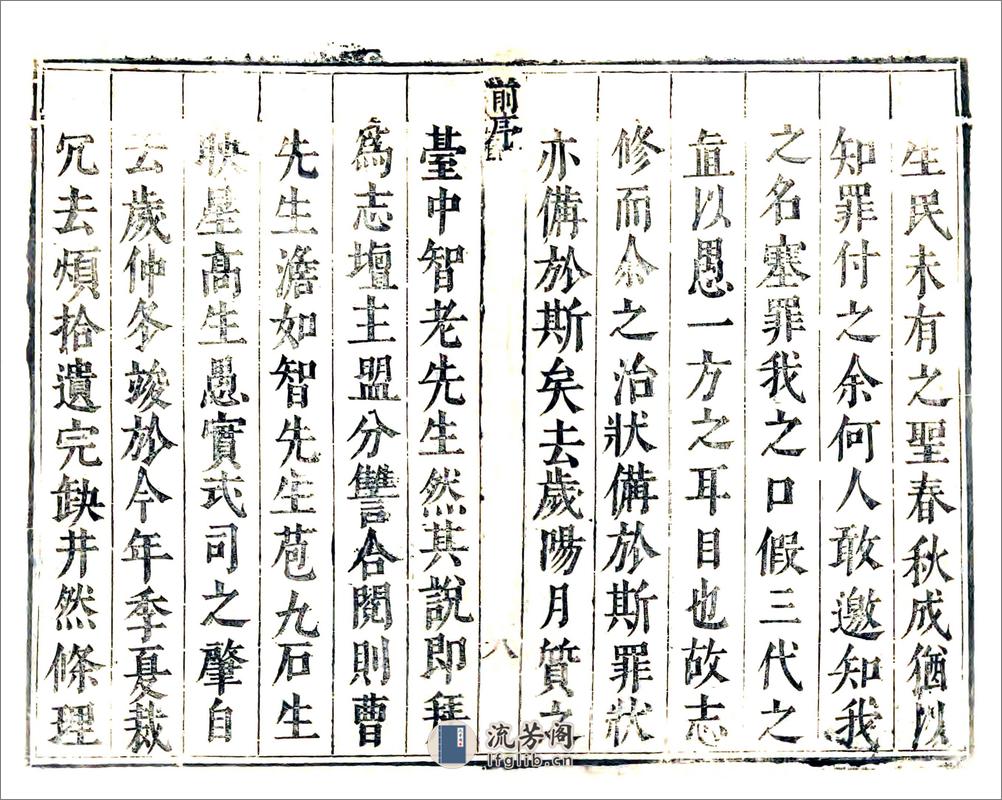 生民未有之聖春秋成猶以
知罪付之余何人敢邀知我
之名塞罪我之口假三代之
直以愚一方之耳目也故志
修而余之治狀備於斯罪狀
亦備於斯矣去歲陽月質之
前序
八
臺中智老先生然其說即拜
爲志壇主盟分讐合閱則曹
先生澹如智先生苞九石生
映星高生愚實式司之肇自
去歲仲冬竣於今年季夏裁
冗去煩拾遺完缺井然條理
流芳阁
lfglib.cn